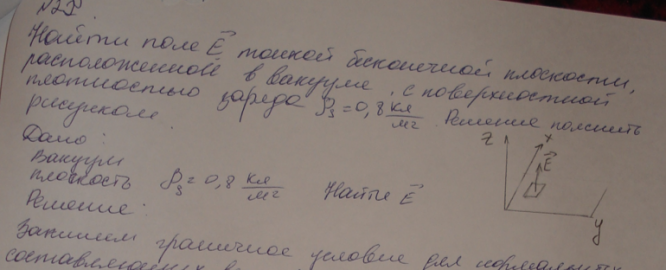 №27
Найти поле E тонкой бесконечной плоскости,
расположенной в вакууме, с поверхностной
плотностью заряда ρз = 0,8 кл/м2. Решение пояснить
рисунком.
Дано:
Вакуум
плоскость ρз = 0,8 кл/м2 Найти E
Решение:
z x E y
Запишем граничное условие для нормальных
составляющих